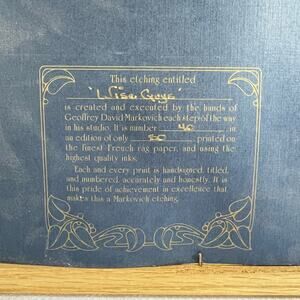 This etching entitled
'Wise Guys'
is created and executed by the hands of
Geoffrey David Markovich each step of the way
in his studio. It is number 40 in
an edition of only 50, printed on
the finest French rag paper, and using the
highest quality inks.
Each and every print is handsigned, titled,
and numbered, accurately and honestly. It is
this pride of achievement in excellence that
makes this a Markovich etching.